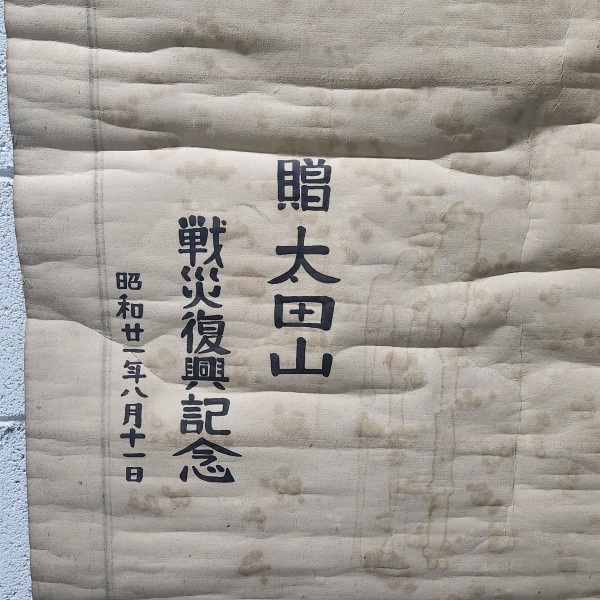 贈 太田山
戦災復興記念
昭和廿一年八月十一日